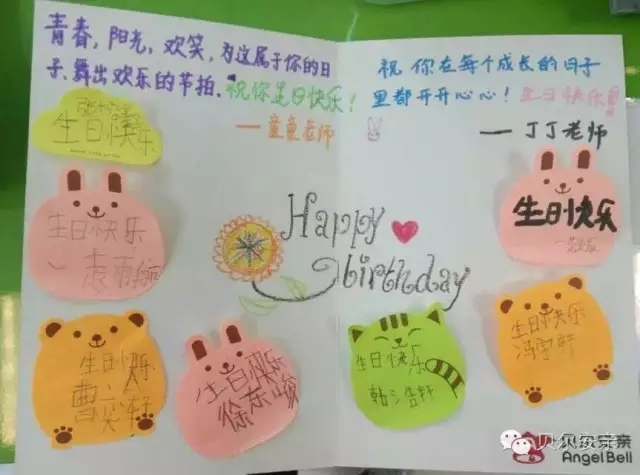 青春，阳光，欢笑，为这属于你的日
子，舞出欢乐的节拍．祝你生日快乐！
——童童老师
祝你在每个成长的日子
里都开开心心！生日快乐
——丁丁老师
生日快乐
生日快乐
生日快乐
Happy
birthday
生日快乐
生日快乐
徐东峻
生日快乐
韩浩轩
生日快乐
冯宇轩
贝尔安亲
AngelBell